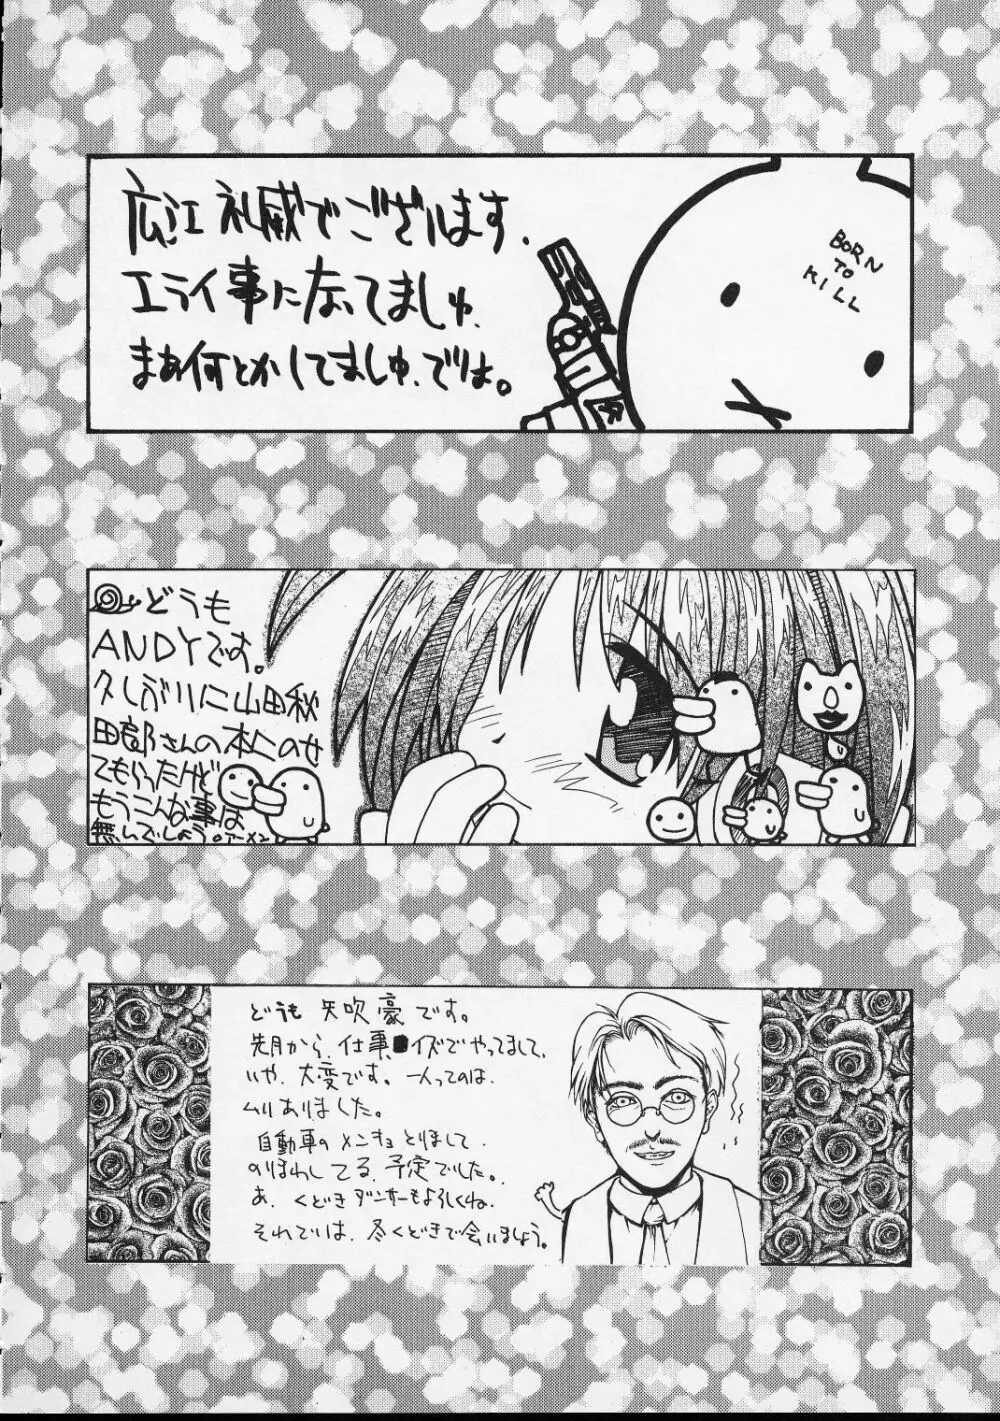 広江礼威でございます.
エライ事になってましゅ.
まぁ何とかしてましゅ.でわ。
BORN
TO
KILL
どうも
ANDYです。
久しぶりに山田秋
田郎さんの本にのせ
てもらったけど
もうこんな事は
無いでしょう。アーメン
どうも 矢吹豪です。
先月から、仕事、イズでやってまして、
いや、大変です。一人ってのは、
ムリありました。
自動車のメンキョとりまして、
のりまわしてる予定でした。
あ、くどきダンサーもよろしくね。
それでは、冬くどきで会いましょう。